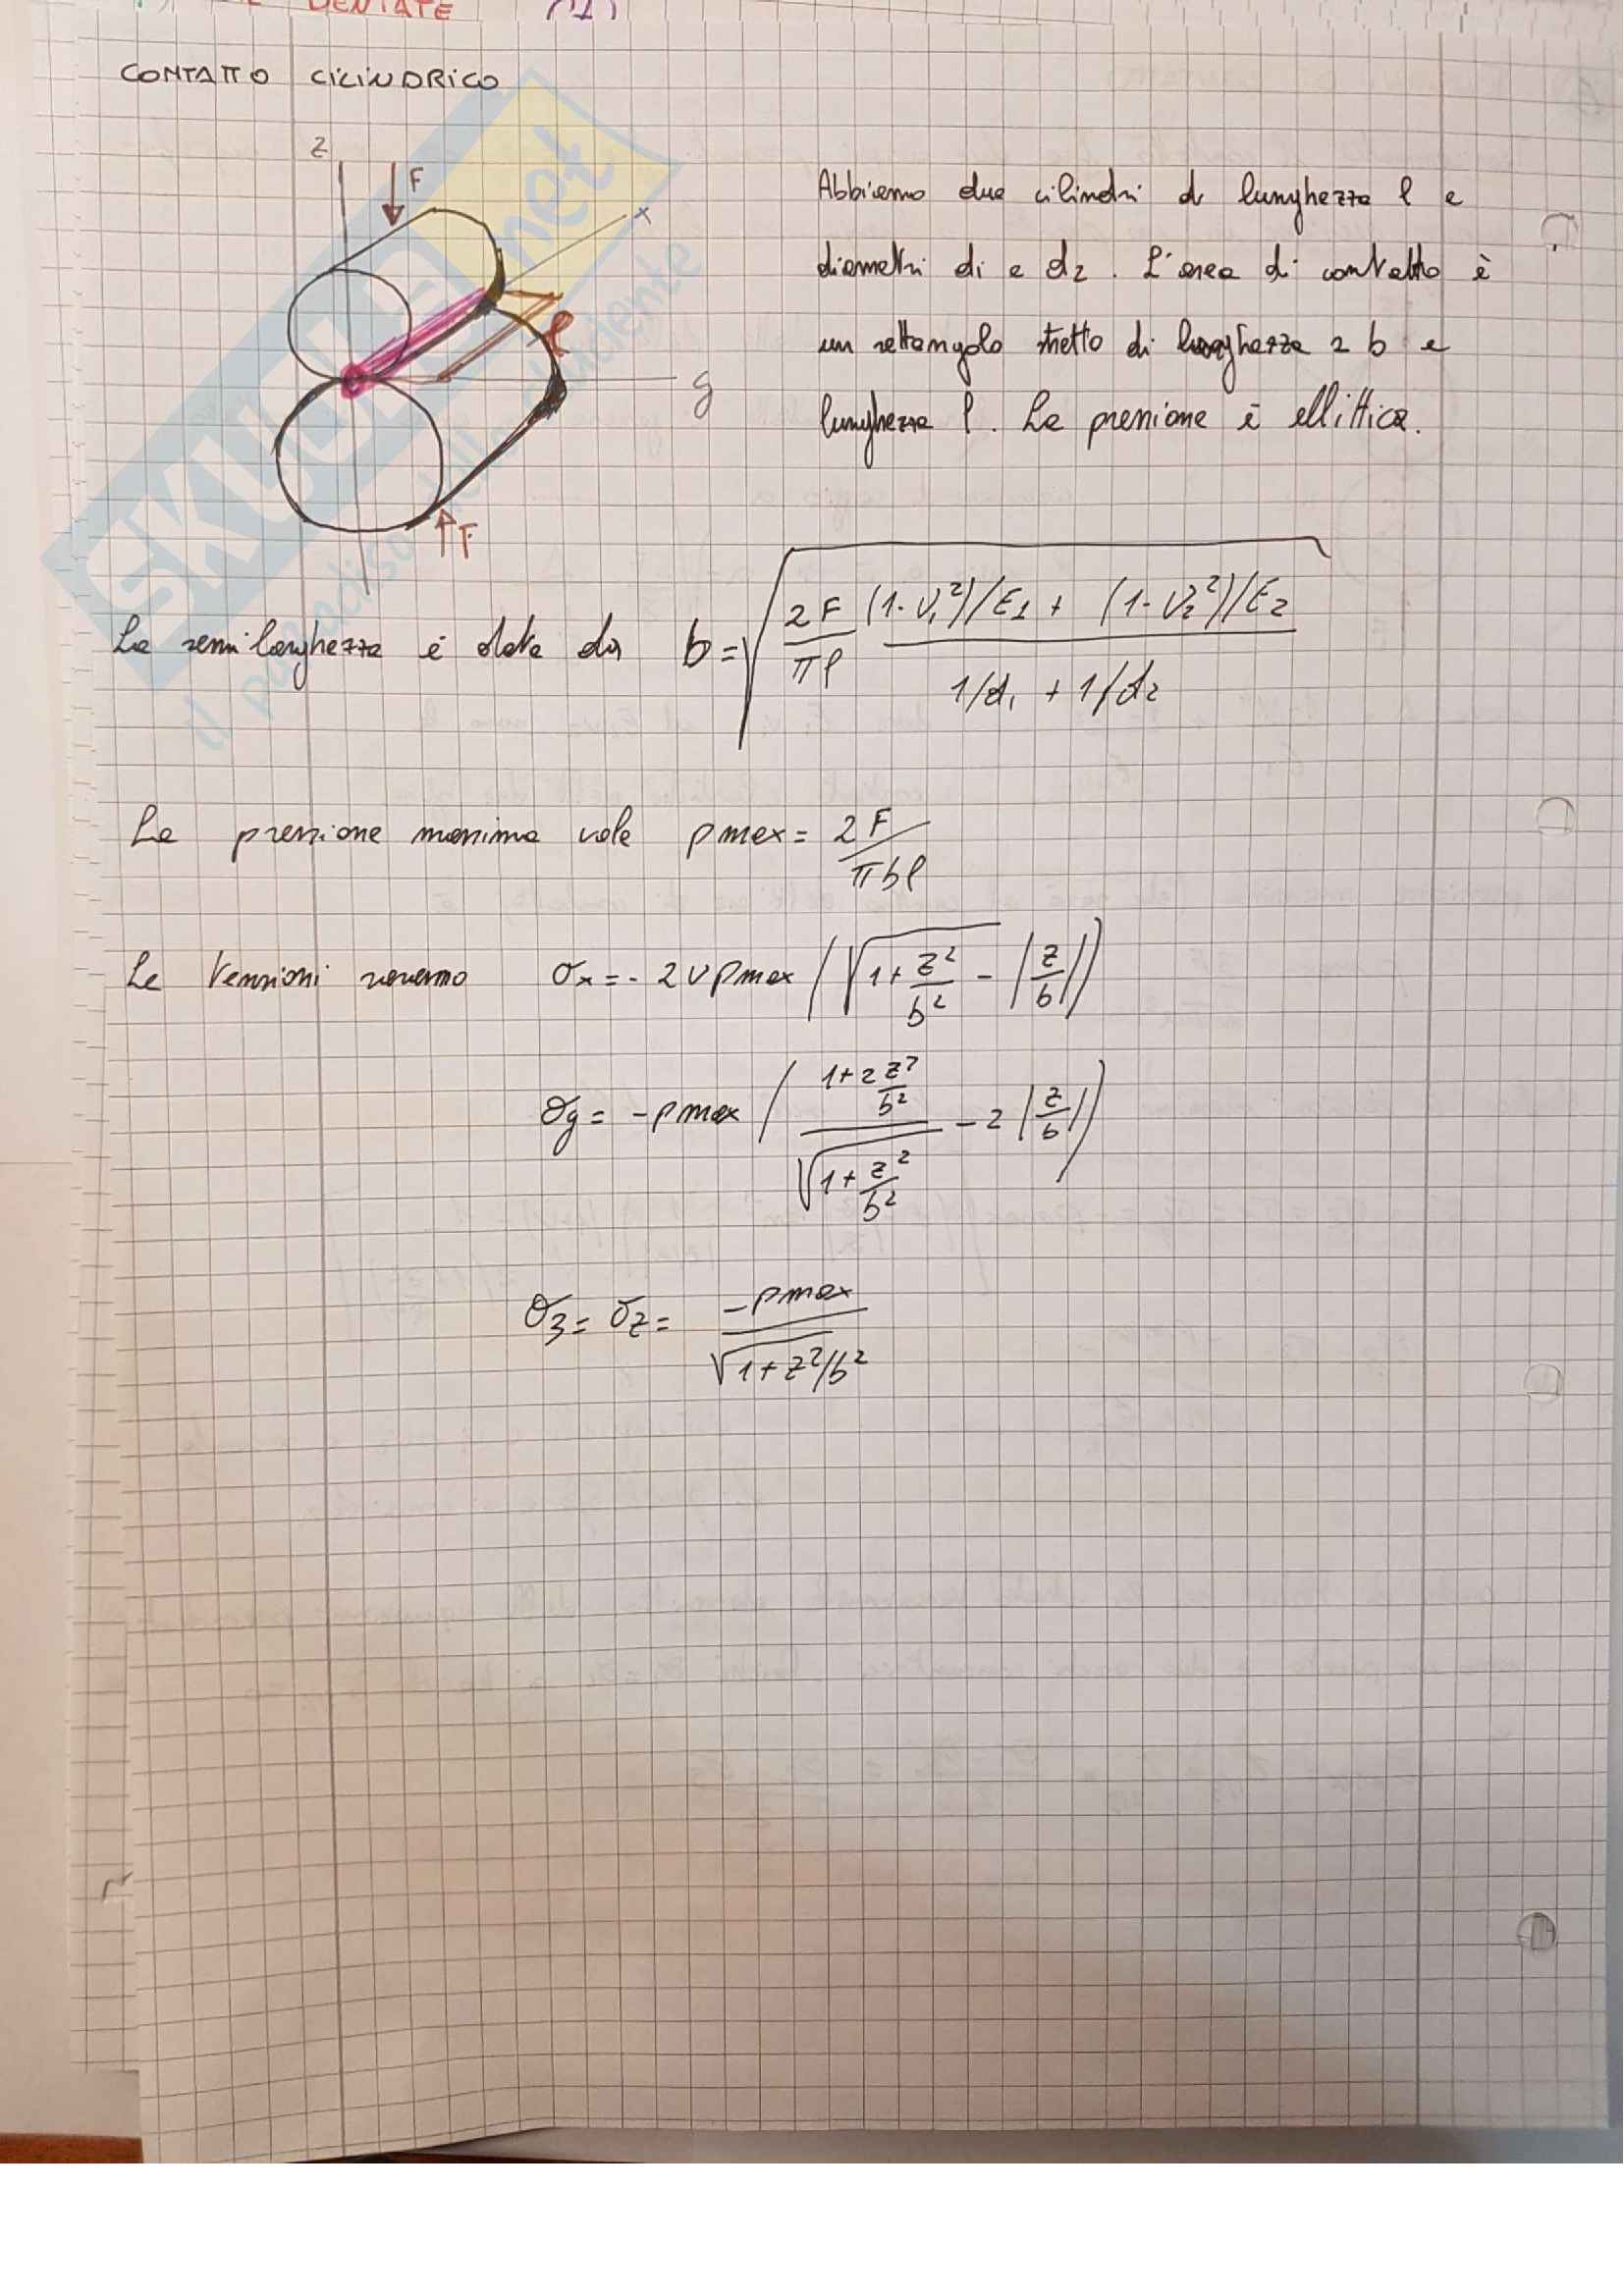 DENTATE (1)
CONTATTO CILINDRICO
z
F
x
l
y
F
Abbiamo due cilindri di lunghezza l e
diametri d1 e d2. L'area di contatto è
un rettangolo stretto di larghezza 2 b e
lunghezza l. La pressione è ellittica.
La semilarghezza è data da b = √(2F/πl · ((1-ν1²)/E1 + (1-ν2²)/E2)/(1/d1 + 1/d2))
La pressione massima vale pmax = 2F/πbl
Le tensioni saranno σx = - 2νpmax (√(1+z²/b²) - |z/b|)
σy = -pmax ((1+2z²/b²)/√(1+z²/b²) - 2|z/b|)
σ3 = σz = -pmax/√(1+z²/b²)
SKUOLA.net
il paradiso dello studente